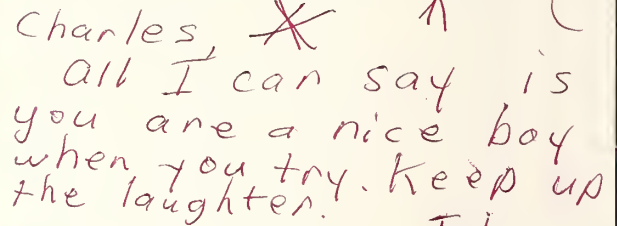 Charles,
All I can say is
you are a nice boy
when you try. Keep up
the laughter.